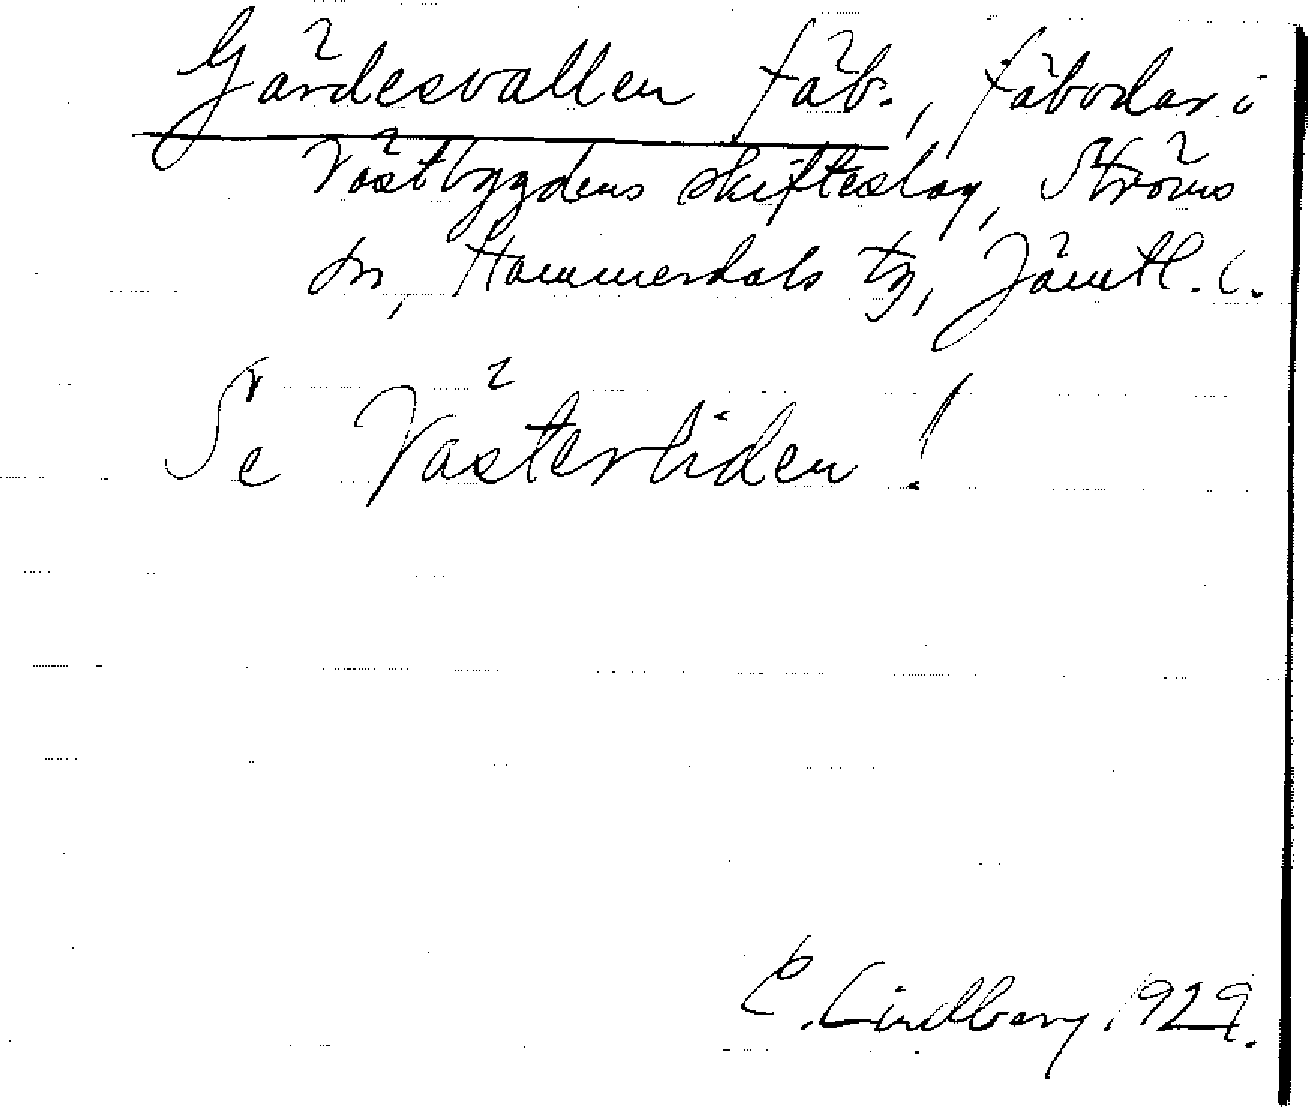 Gärdesvallen fäb., fäbodar i
Västbygdens skifteslag, Ströms
sn, Hammerdals tg, Jämtl. l.
Se Västerliden!
C. Lindberg 1929.